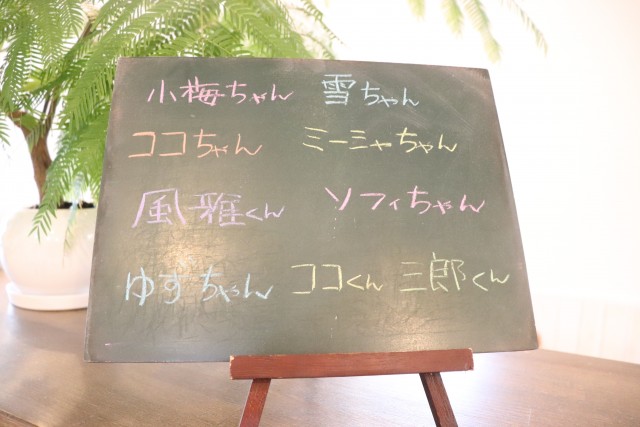 小梅ちゃん 雪ちゃん
ココちゃん ミーシャちゃん
風雅くん ソフィちゃん
ゆずちゃん ココくん 三郎くん